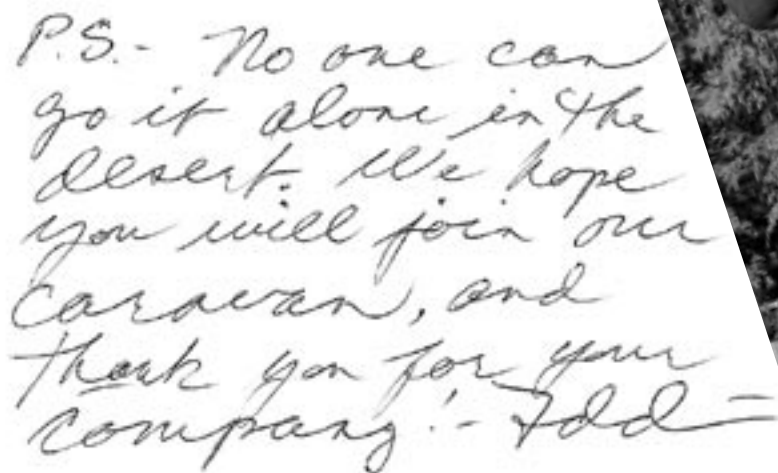 P.S.- No one can
go it alone in the
desert. We hope
you will join our
caravan, and
thank you for your
company! - Todd -